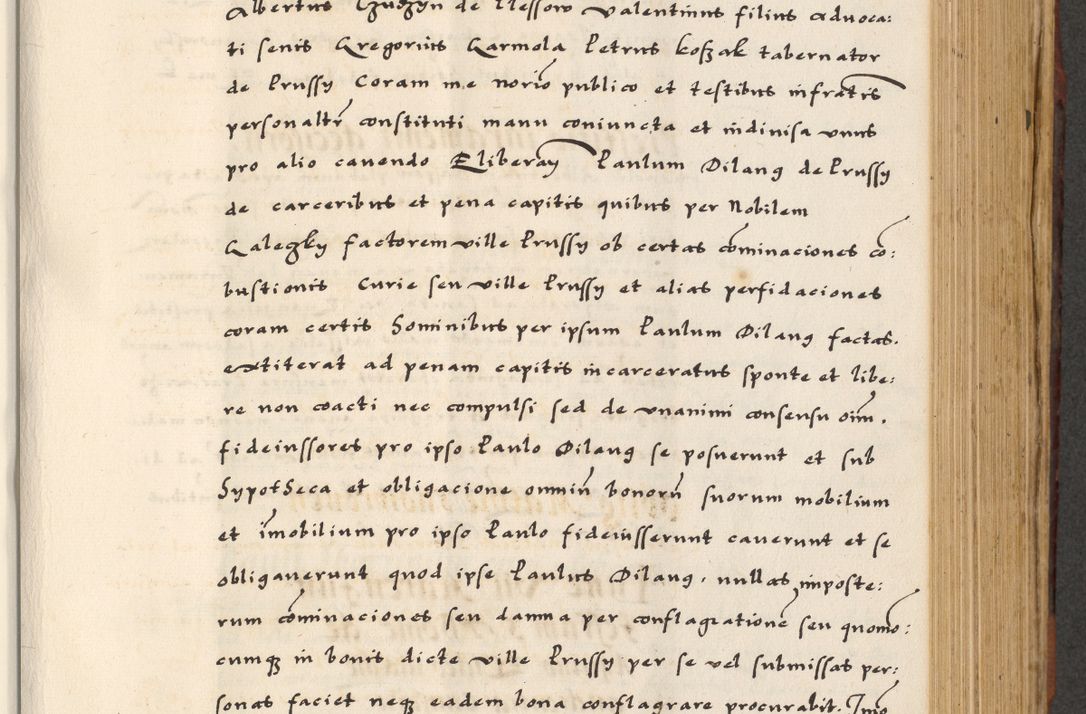 Albertus de Plessow Valentinus filius advoca:
ti senis Gregorius Garmola Petrus koszak tabernator
de Prussy Coram me norio publico et testibus infratis
personaltr constituti manu coniuncta et indivisa unus
pro alio cavendo Eliberay Paulum Dilang de Prussy
de carceribus et pena capitis quibus per Nobilem
Galeczky factorem ville Prussy ob certas cominaciones co:
bustionis Curie seu ville Prussy et alias perfidaciones
coram certis hominibus per ipsum Paulum Dilang factas.
extiterat ad penam capitis incarceratus sponte et libe:
re non coacti nec compulsi sed de unanimi consensu oim.
fideiussores pro ipso Paulo Dilang se posuerunt et sub
hypotheca et obligacione omniu bonoru suorum mobilium
et imobilium pro ipso Paulo fideiusserunt caverunt et se
obligaverunt quod ipse Paulus Dilang. nullas imposte:
rum cominaciones seu damna per conflagratione seu quomo:
cumq in bonis dicte ville Prussy per se vel submissas per:
sonas faciet neq eadem bona conflagrare procurabit. Imo